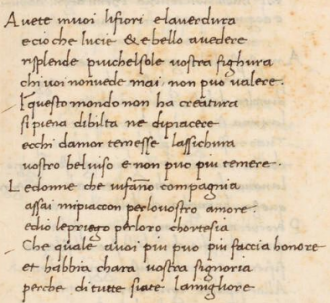 Avete invoi lifiori elaverdura
ecio che lucie & e bello avedere
risplende piuchelsole vostra fighura
chi voi nonvede mai non puo valere.
Iquesto mondo non ha creatura
sipiena dibilta ne dipiacere
echi damor temesse lassichura
vostro belviso e non puo piu temere.
Ledonne che vifano compagnia
assai mipiaccon perlovostro amore.
edio lepriego perloro chortesia
Che quale avoi piu puo piu faccia honore
et habbia chara vostra signoria
perche ditutte siate lamigliore